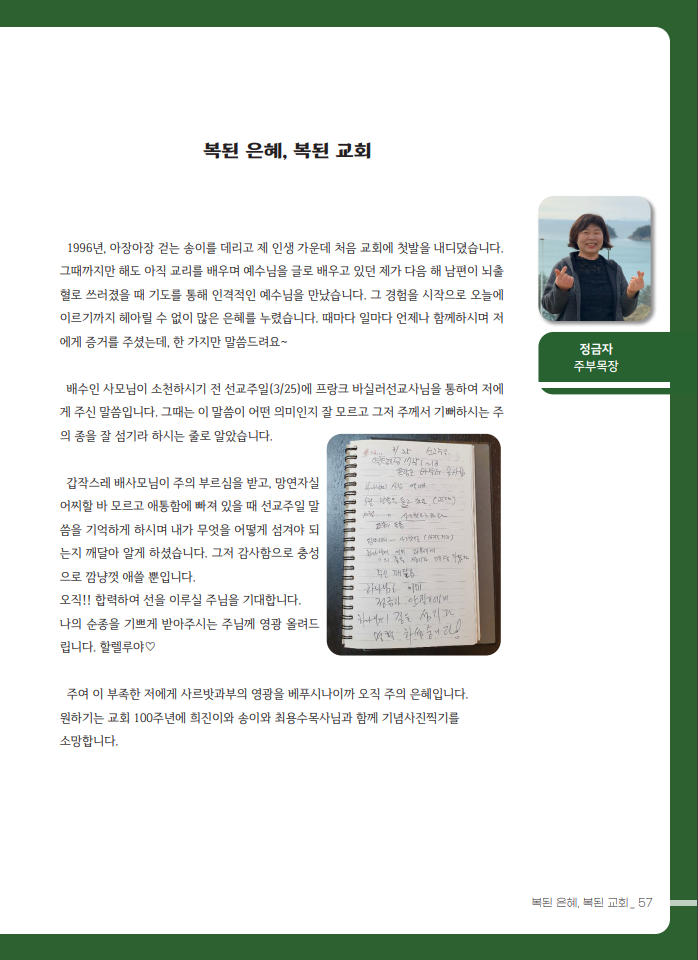 복된 은혜, 복된 교회
1996년, 아장아장 걷는 송이를 데리고 제 인생 가운데 처음 교회에 첫발을 내디뎠습니다.
그때까지만 해도 아직 교리를 배우며 예수님을 글로 배우고 있던 제가 다음 해 남편이 뇌출
혈로 쓰러졌을 때 기도를 통해 인격적인 예수님을 만났습니다. 그 경험을 시작으로 오늘에
이르기까지 헤아릴 수 없이 많은 은혜를 누렸습니다. 때마다 일마다 언제나 함께하시며 저
에게 증거를 주셨는데, 한 가지만 말씀드려요~
정금자
주부목장
배수인 사모님이 소천하시기 전 선교주일(3/25)에 프랑크 바실러선교사님을 통하여 저에
게 주신 말씀입니다. 그때는 이 말씀이 어떤 의미인지 잘 모르고 그저 주께서 기뻐하시는 주
의 종을 잘 섬기라 하시는 줄로 알았습니다.
갑작스레 배사모님이 주의 부르심을 받고, 망연자실
어찌할 바 모르고 애통함에 빠져 있을 때 선교주일 말
씀을 기억하게 하시며 내가 무엇을 어떻게 섬겨야 되
는지 깨달아 알게 하셨습니다. 그저 감사함으로 충성
으로 깜냥껏 애쓸 뿐입니다.
오직!! 합력하여 선을 이루실 주님을 기대합니다.
나의 순종을 기쁘게 받아주시는 주님께 영광 올려드
립니다. 할렐루야♡
3/25
주여 이 부족한 저에게 사르밧과부의 영광을 베푸시나이까 오직 주의 은혜입니다.
원하기는 교회 100주년에 희진이와 송이와 최용수목사님과 함께 기념사진찍기를
소망합니다.
복된 은혜, 복된 교회_ 57